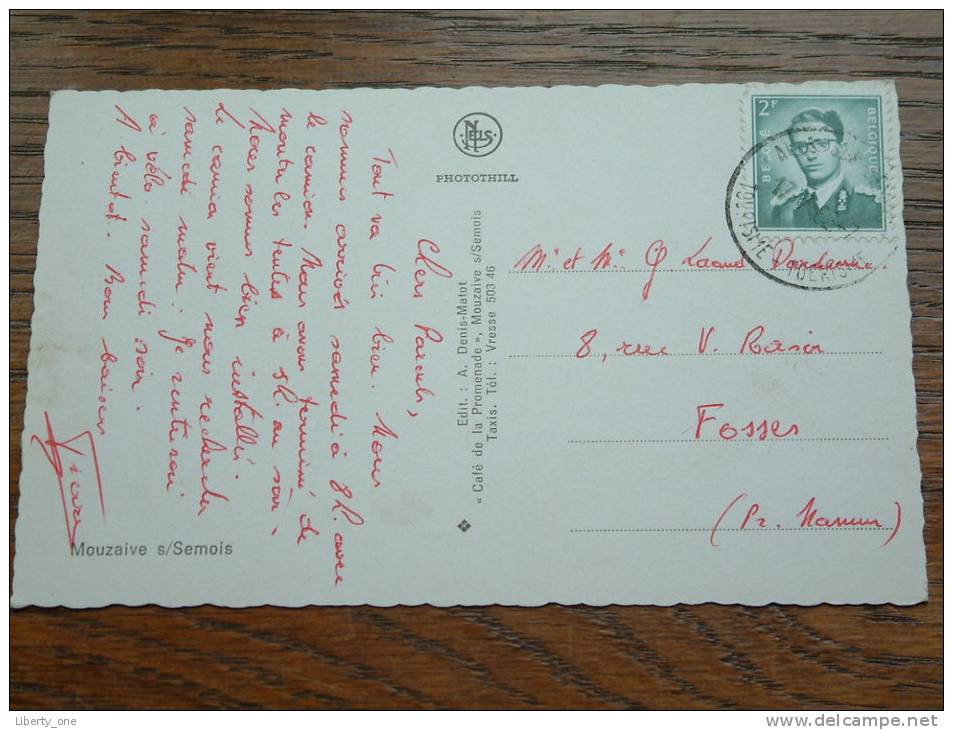 Chers Parents,
Tout va très bien. Nous
sommes arrivés samedi à 8 h. avec
le camion. Nous avons terminé de
monter les tentes à 5h. au soir.
Nous sommes bien installé.
Le camion vient nous rechercher
samedi matin. Je rentrerai
à vélo samedi soir.
A bientôt. Bons baisers
Mouzaive s/Semois
NELS
PHOTOTHILL
Edit. : A. Denis-Matot
« Café de la Promenade », Mouzaive s/Semois
Taxis. Tél. : Vresse 503 46
2F
BELGIË
BELGIQUE
TOURISME
TOERISME
Mr et Me G.
8, rue V. Roisin
Fosses
(Pr. Namur)
Liberty_one
www.delcampe.net